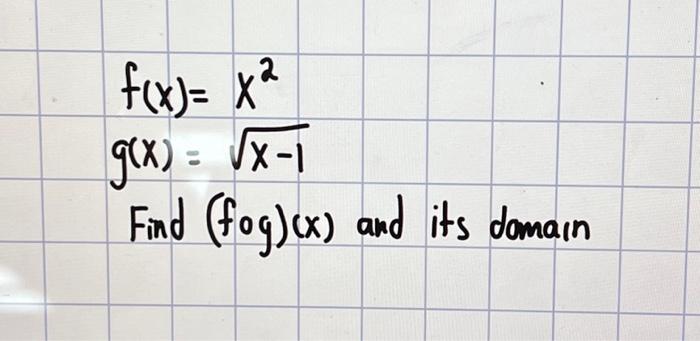 f(x)= x²
g(x) = √x-1
Find (fog)(x) and its domain